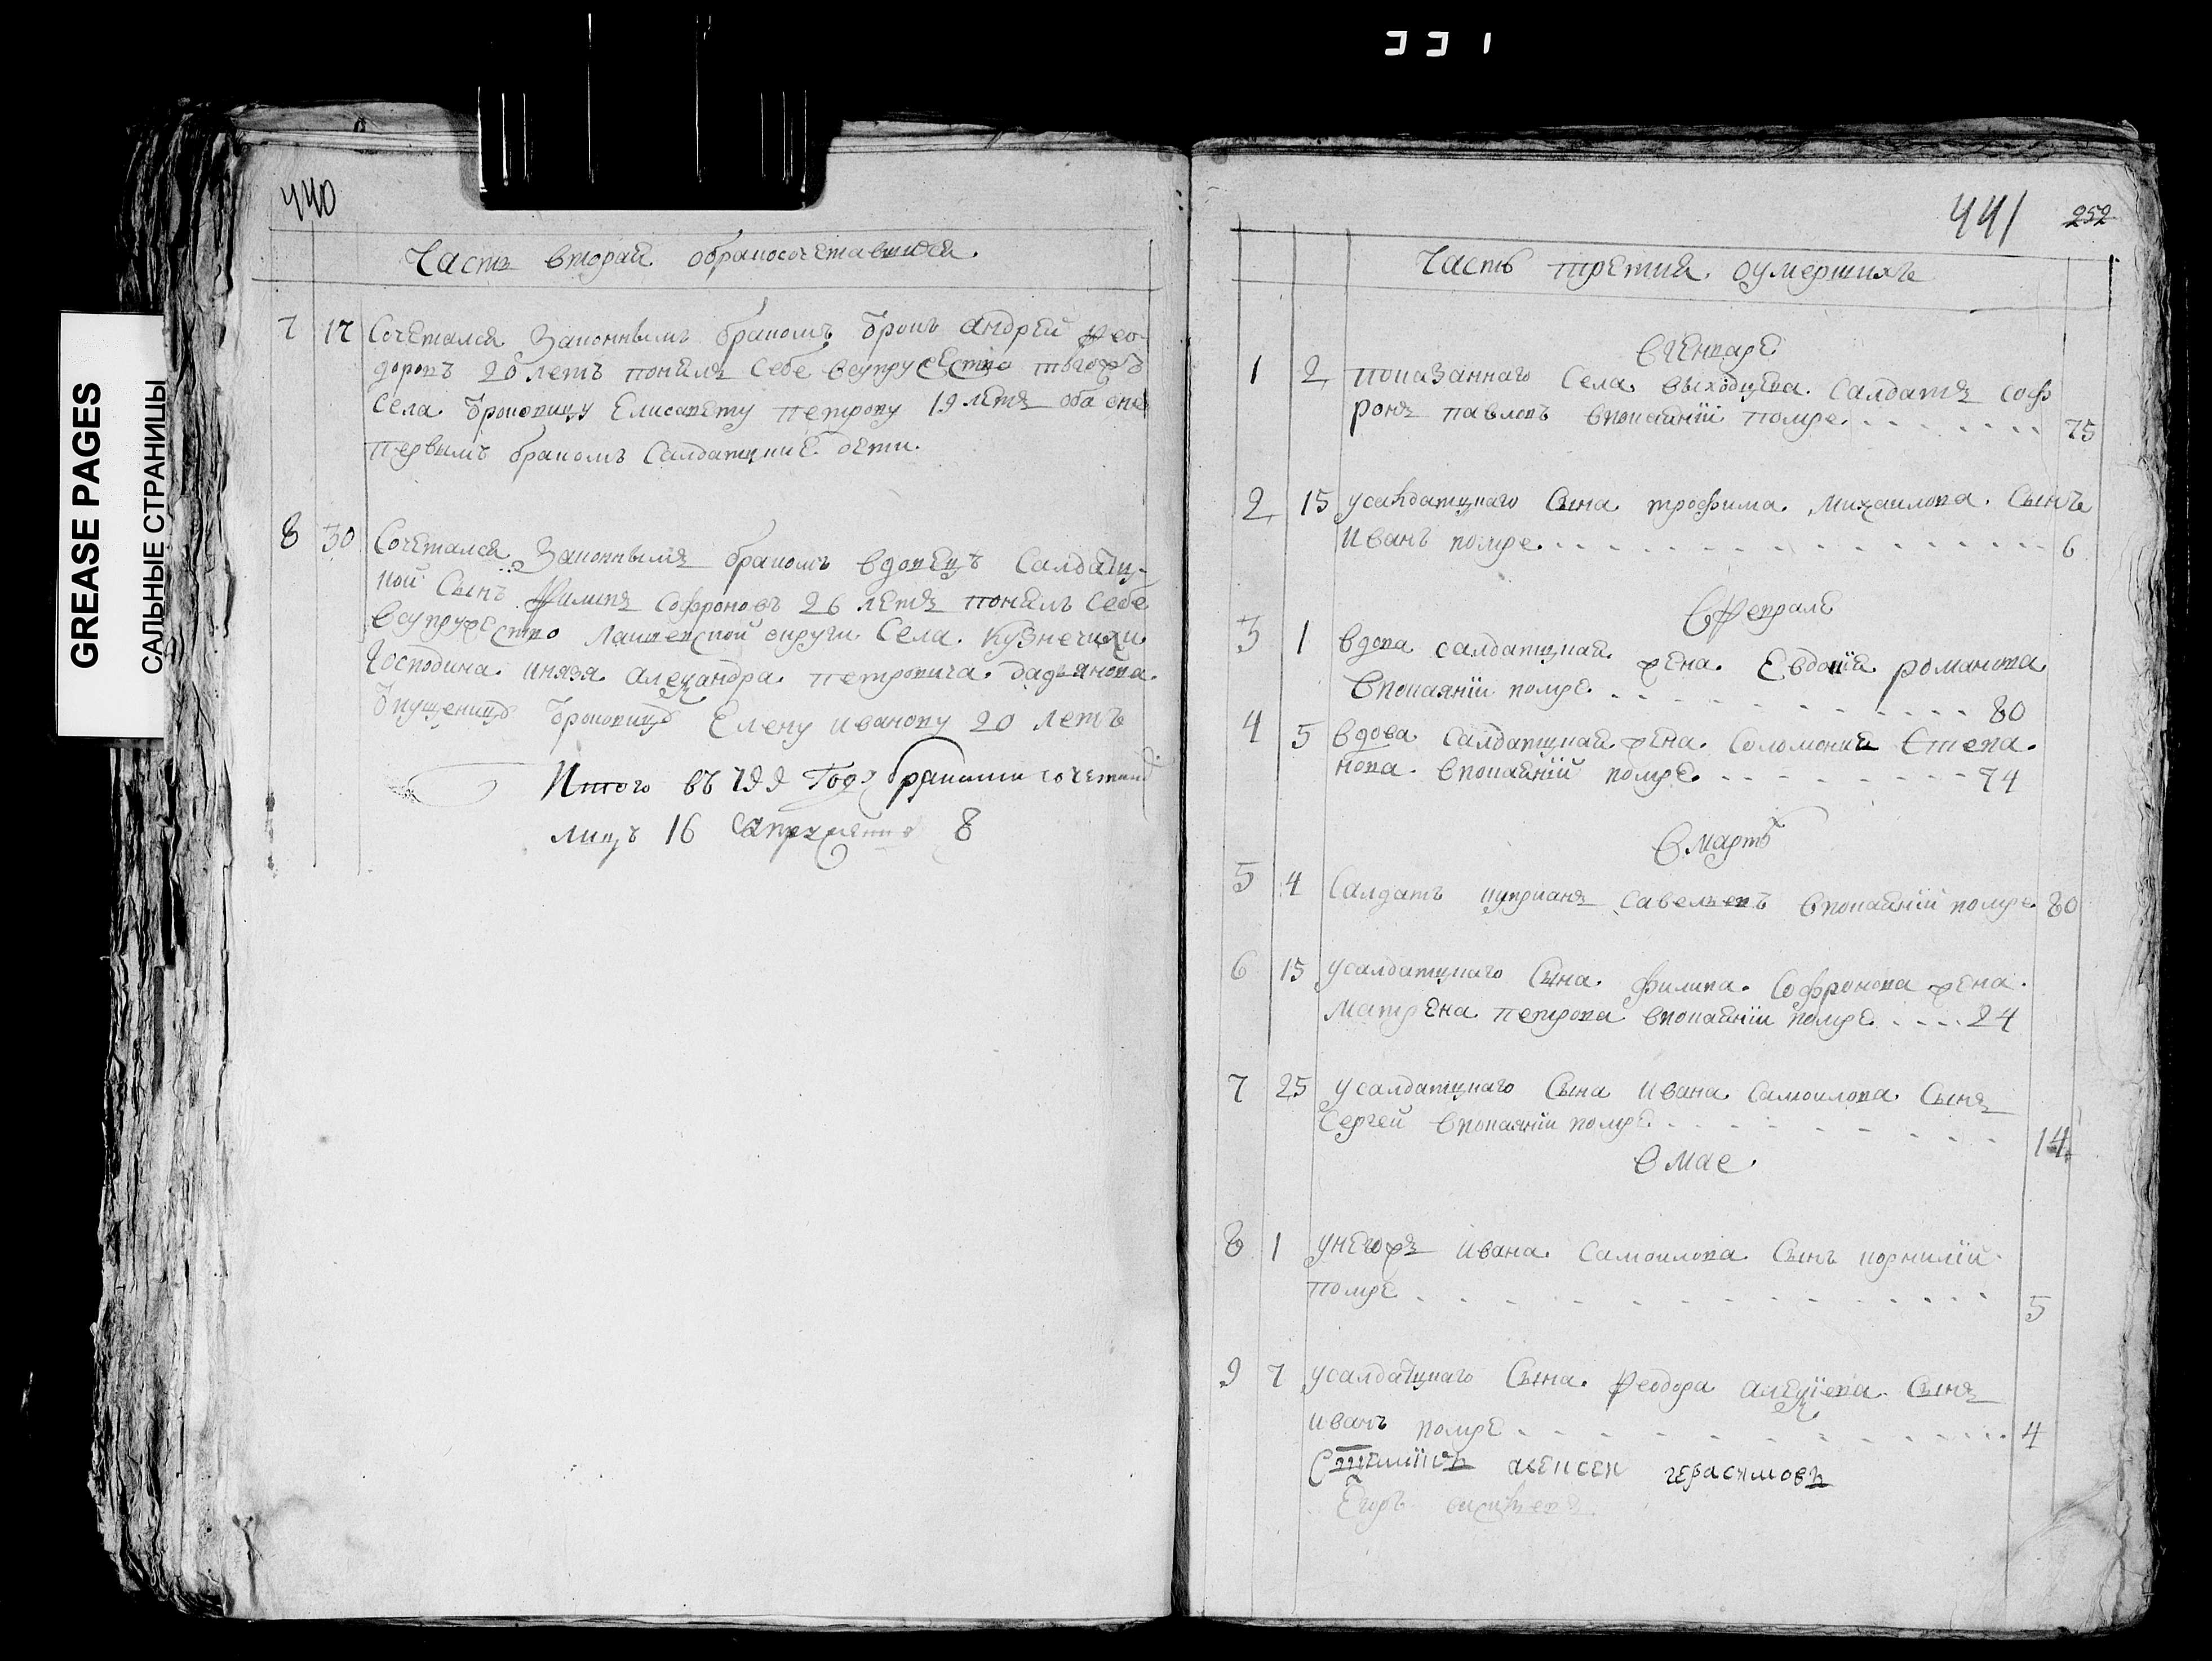 331
GREASE PAGES
САЛЬНЫЕ СТРАНИЦЫ
440
Часть вторая обракосочетавшихся
7 17 Сочетался Законнымъ бракомъ Отрокъ андрей Фео-
доровъ 20 летъ понялъ Себе всупружество тогожъ
Села Отроковицу Елисавету петрову 19 летъ оба
первымъ бракомъ Салдатцкие дети.
8 30 Сочетался Законнымъ бракомъ вдовецъ Салдатц-
кой Сынъ Филипъ Софроновъ 26 летъ понялъ Себе
всупружество Лаишевской округи Села Кузнечихи
Господина князя Алеѯандра петровича дадьянова
Отроковицу Елену иванову 20 летъ
Итого въ Году браками
лицъ 16 8
441 252
Часть третия оумершихъ
в Генваре
1 2 показаннаго Села выходцева Салдатъ соф
ронъ павловъ впокаянїи помре 75
2 15 усалдатцкаго Сына трофима михаилова Сынъ
Иванъ помре 6
в Феврале
3 1 вдова салдатцкая жена Евдокїя романова
впокаянїи помре 80
4 5 вдова Салдатцкая жена Соломония Степа-
нова впокаянїи помре 74
в марте
5 4 Салдатъ куприанъ Савельевъ впокаянїи помре 80
6 15 усалдатцкаго Сына филипа Софронова жена
матрена петрова впокаянїи помре 24
7 25 усалдатцкаго Сына ивана Самоилова Сынъ
Сергей впокаянїи помре 14
в мае
8 1 унегожъ ивана Самоилова Сынъ корнилїй
помре 5
9 7 усалдатцкаго Сына Феодора алеѯїева Сынъ
иванъ помре 4
алеѯей герасимовъ